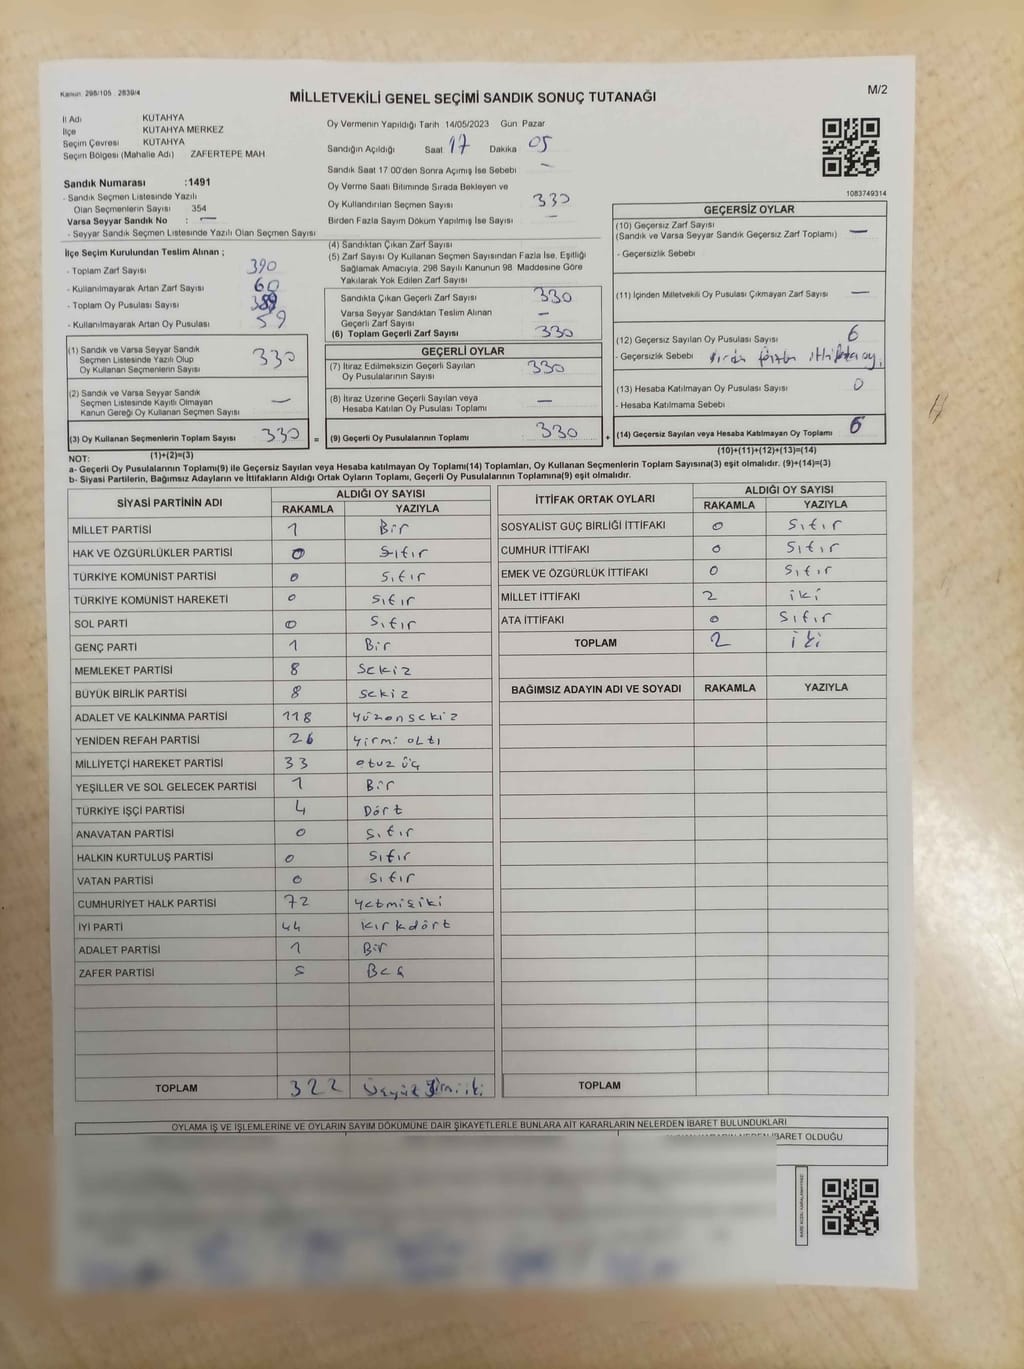 Kanun: 298/105 . 2839/4
M/2
MİLLETVEKİLİ GENEL SEÇİMİ SANDIK SONUÇ TUTANAĞI
İl Adı KUTAHYA
İlçe KUTAHYA MERKEZ
Seçim Çevresi KUTAHYA
Seçim Bölgesi (Mahalle Adı) ZAFERTEPE MAH
Sandık Numarası :1491
- Sandık Seçmen Listesinde Yazılı
Olan Seçmenlerin Sayısı 354
Varsa Seyyar Sandık No : —
- Seyyar Sandık Seçmen Listesinde Yazılı Olan Seçmen Sayısı
Oy Vermenin Yapıldığı Tarih 14/05/2023 Gün Pazar
Sandığın Açıldığı Saat 17 Dakika 05
Sandık Saat 17.00'den Sonra Açımış İse Sebebi —
Oy Verme Saati Bitiminde Sırada Bekleyen ve
Oy Kullandırılan Seçmen Sayısı 330
Birden Fazla Sayım Döküm Yapılmış İse Sayısı —
1083749314
İlçe Seçim Kurulundan Teslim Alınan ;
- Toplam Zarf Sayısı 390
- Kullanılmayarak Artan Zarf Sayısı 60
- Toplam Oy Pusulası Sayısı 389
- Kullanılmayarak Artan Oy Pusulası 59
(1) Sandık ve Varsa Seyyar Sandık
Seçmen Listesinde Yazılı Olup
Oy Kullanan Seçmenlerin Sayısı 330
(2) Sandık ve Varsa Seyyar Sandık
Seçmen Listesinde Kayıtlı Olmayan
Kanun Gereği Oy Kullanan Seçmen Sayısı —
(3) Oy Kullanan Seçmenlerin Toplam Sayısı 330 =
(1)+(2)=(3)
(4) Sandıktan Çıkan Zarf Sayısı
(5) Zarf Sayısı Oy Kullanan Seçmen Sayısından Fazla İse, Eşitliği
Sağlamak Amacıyla, 298 Sayılı Kanunun 98. Maddesine Göre
Yakılarak Yok Edilen Zarf Sayısı
Sandıkta Çıkan Geçerli Zarf Sayısı 330
Varsa Seyyar Sandıktan Teslim Alınan
Geçerli Zarf Sayısı —
(6) Toplam Geçerli Zarf Sayısı 330
GEÇERLİ OYLAR
(7) İtiraz Edilmeksizin Geçerli Sayılan
Oy Pusulalarının Sayısı 330
(8) İtiraz Üzerine Geçerli Sayılan veya
Hesaba Katılan Oy Pusulası Toplamı —
(9) Geçerli Oy Pusulalarının Toplamı 330 +
GEÇERSİZ OYLAR
(10) Geçersiz Zarf Sayısı
(Sandık ve Varsa Seyyar Sandık Geçersiz Zarf Toplamı) —
- Geçersizlik Sebebi
(11) İçinden Milletvekili Oy Pusulası Çıkmayan Zarf Sayısı —
(12) Geçersiz Sayılan Oy Pusulası Sayısı 6
- Geçersizlik Sebebi Birden fazla ittifaka oy.
(13) Hesaba Katılmayan Oy Pusulası Sayısı 0
- Hesaba Katılmama Sebebi
(14) Geçersiz Sayılan veya Hesaba Katılmayan Oy Toplamı 6
(10)+(11)+(12)+(13)=(14)
NOT:
a- Geçerli Oy Pusulalarının Toplamı(9) ile Geçersiz Sayılan veya Hesaba katılmayan Oy Toplamı(14) Toplamları, Oy Kullanan Seçmenlerin Toplam Sayısına(3) eşit olmalıdır. (9)+(14)=(3)
b- Siyasi Partilerin, Bağımsız Adayların ve İttifakların Aldığı Ortak Oyların Toplamı, Geçerli Oy Pusulalarının Toplamına(9) eşit olmalıdır.
SİYASİ PARTİNİN ADI ALDIĞI OY SAYISI
RAKAMLA YAZIYLA
MİLLET PARTİSİ 1 Bir
HAK VE ÖZGÜRLÜKLER PARTİSİ 0 Sıfır
TÜRKİYE KOMÜNİST PARTİSİ 0 Sıfır
TÜRKİYE KOMÜNİST HAREKETİ 0 Sıfır
SOL PARTİ 0 Sıfır
GENÇ PARTİ 1 Bir
MEMLEKET PARTİSİ 8 Sekiz
BÜYÜK BİRLİK PARTİSİ 8 Sekiz
ADALET VE KALKINMA PARTİSİ 118 Yüzonsekiz
YENİDEN REFAH PARTİSİ 26 Yirmi altı
MİLLİYETÇİ HAREKET PARTİSİ 33 otuz üç
YEŞİLLER VE SOL GELECEK PARTİSİ 1 Bir
TÜRKİYE İŞÇİ PARTİSİ 4 Dört
ANAVATAN PARTİSİ 0 Sıfır
HALKIN KURTULUŞ PARTİSİ 0 Sıfır
VATAN PARTİSİ 0 Sıfır
CUMHURİYET HALK PARTİSİ 72 Yetmişiki
İYİ PARTİ 44 Kırkdört
ADALET PARTİSİ 1 Bir
ZAFER PARTİSİ 5 Beş
TOPLAM 322 Üçyüz Yirmi iki
İTTİFAK ORTAK OYLARI ALDIĞI OY SAYISI
RAKAMLA YAZIYLA
SOSYALİST GÜÇ BİRLİĞİ İTTİFAKI 0 Sıfır
CUMHUR İTTİFAKI 0 Sıfır
EMEK VE ÖZGÜRLÜK İTTİFAKI 0 Sıfır
MİLLET İTTİFAKI 2 iki
ATA İTTİFAKI 0 Sıfır
TOPLAM 2 iki
BAĞIMSIZ ADAYIN ADI VE SOYADI RAKAMLA YAZIYLA
TOPLAM
OYLAMA İŞ VE İŞLEMLERİNE VE OYLARIN SAYIM DÖKÜMÜNE DAİR ŞİKAYETLERLE BUNLARA AİT KARARLARIN NELERDEN İBARET BULUNDUKLARI
İBARET OLDUĞU